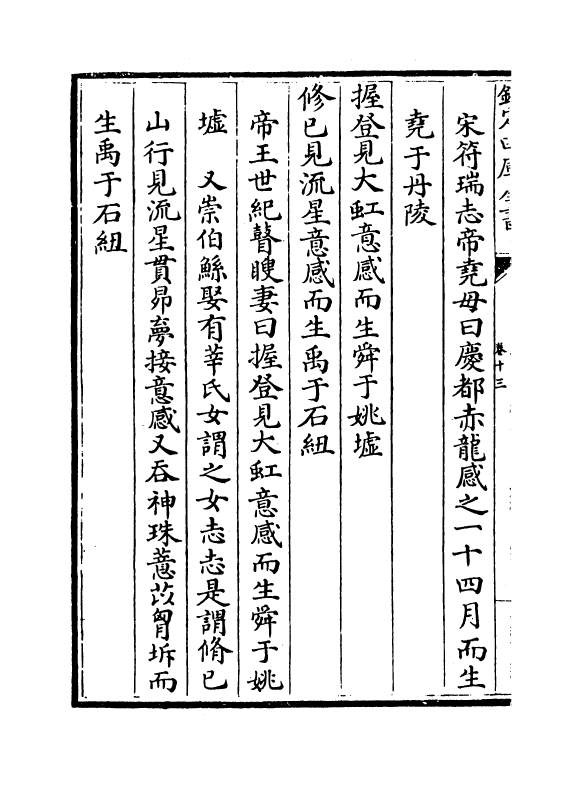 欽定四庫全書
卷十三
宋符瑞志帝堯母曰慶都赤龍感之一十四月而生
堯于丹陵
握登見大虹意感而生舜于姚墟
修已見流星意感而生禹于石紐
帝王世紀瞽瞍妻曰握登見大虹意感而生舜于姚
墟　又崇伯鯀娶有莘氏女謂之女志志是謂脩已
山行見流星貫昴夢接意感又吞神珠薏苡胷坼而
生禹于石紐